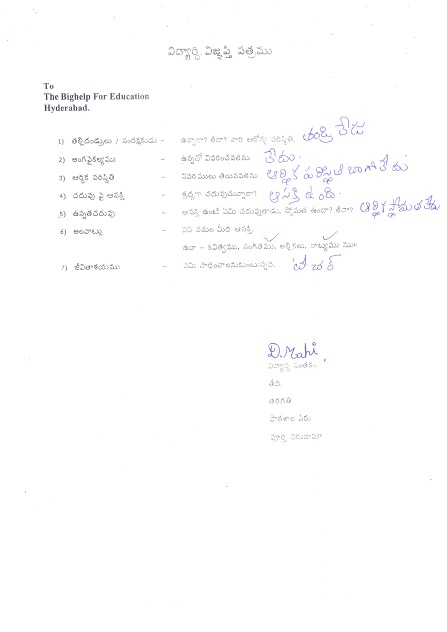 విద్యార్థి విజ్ఞప్తి పత్రము
To
The Bighelp For Education
Hyderabad.
1) తల్లిదండ్రులు / సంరక్షకుడు - ఉన్నారా? లేదా? వారి ఆరోగ్య పరిస్థితి. తండ్రి లేడు
2) అంగవైకల్యము - ఉన్నచో వివరించవలెను. లేదు.
3) ఆర్థిక పరిస్థితి - వివరములు తెలుపవలెను. ఆర్థిక పరిస్థితి బాగా లేదు
4) చదువు పై ఆసక్తి - శ్రద్ధగా చదువుచున్నారా? ఆసక్తి ఉంది.
5) ఉన్నతచదువు - ఆసక్తి ఉంటే ఏమి చదువుతాడు, స్తోమత ఉందా? లేదా? ఆర్థిక స్తోమత లేదు
6) అలవాట్లు - ఏఏ పనుల మీద ఆసక్తి.
ఉదా - కవిత్వము, సంగీతము, అల్లికలు, నాట్యము మొ॥
7) జీవితాశయము - ఏమి సాధించాలనుకుంటున్నది. టీచర్
D. Mahi
విద్యార్థి సంతకం.
తేది.
తరగతి
పాఠశాల పేరు
పూర్తి చిరునామా